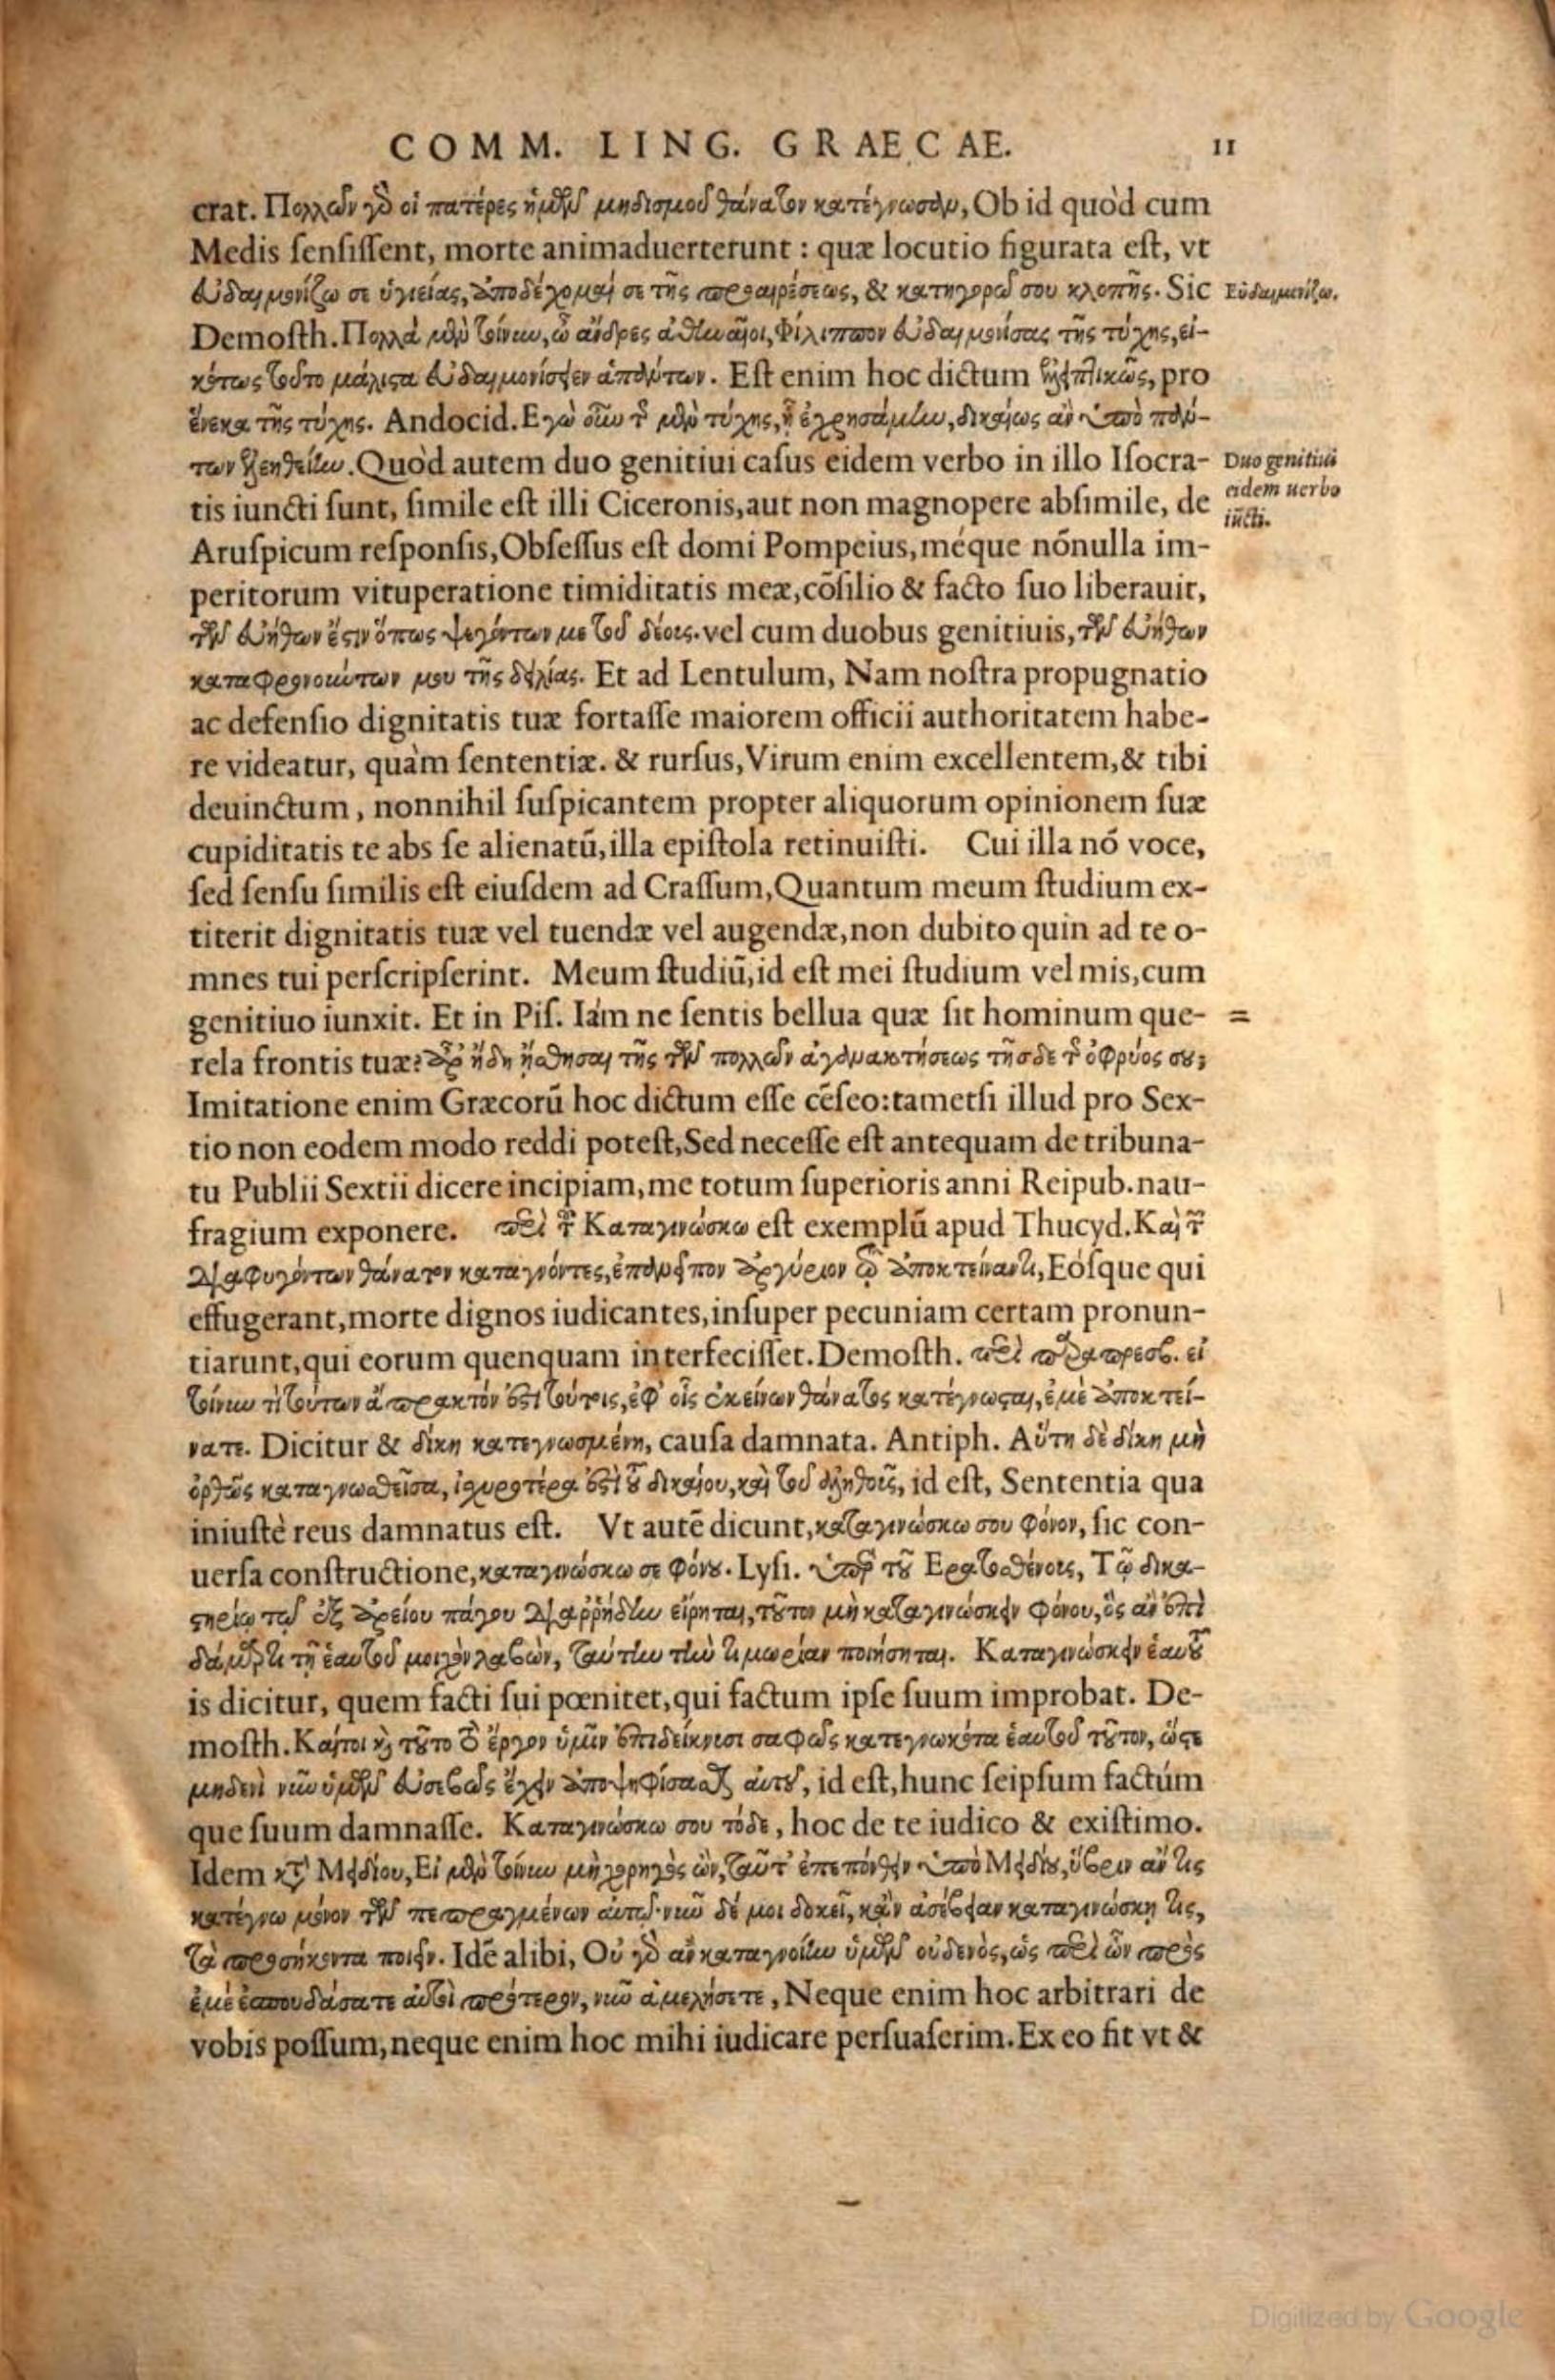 COMM. LING. GRAECAE. 11
crat. Πολλῶν γὰρ οἱ πατέρες ἡμῶν μηδισμοῦ θάνατον κατέγνωσαν, Ob id quòd cum
Medis ſenſiſſent, morte animaduerterunt : quæ locutio figurata eſt, vt
εὐδαιμονίζω σε ὑγιείας, ἀποδέχομαί σε τῆς προαιρέσεως, & κατηγορῶ σου κλοπῆς. Sic
Εὐδαιμονίζω.
Demoſth. Πολλὰ μὲν τοίνυν, ὦ ἄνδρες ἀθηναῖοι, Φίλιππον εὐδαιμονίσας τῆς τύχης, εἰ-
κότως τοῦτο μάλιστα εὐδαιμονίσειεν ἁπάντων. Eſt enim hoc dictum ἐλλειπτικῶς, pro
ἕνεκα τῆς τύχης. Andocid. Εγὼ οὖν τῆς μὲν τύχης, ᾗ ἐχρησάμην, δικαίως ἂν ὑπὸ πάν-
των ἐλεηθείην. Quòd autem duo genitiui caſus eidem verbo in illo Iſocra-
Duo genitiui
eidem uerbo
iũcti.
tis iuncti ſunt, ſimile eſt illi Ciceronis, aut non magnopere abſimile, de
Aruſpicum reſponſis, Obſeſſus eſt domi Pompeius, méque nõnulla im-
peritorum vituperatione timiditatis meæ, cõſilio & facto ſuo liberauit,
τῶν εὐήθων ἔστιν ὅπως ψεγόντων με τοῦ δέους. vel cum duobus genitiuis, τῶν εὐήθων
καταφρονούντων μου τῆς δειλίας. Et ad Lentulum, Nam noſtra propugnatio
ac defenſio dignitatis tuæ fortaſſe maiorem officii authoritatem habe-
re videatur, quàm ſententiæ. & rurſus, Virum enim excellentem, & tibi
deuinctum, nonnihil ſuſpicantem propter aliquorum opinionem ſuæ
cupiditatis te abs ſe alienatũ, illa epiſtola retinuiſti. Cui illa nõ voce,
ſed ſenſu ſimilis eſt eiuſdem ad Craſſum, Quantum meum ſtudium ex-
titerit dignitatis tuæ vel tuendæ vel augendæ, non dubito quin ad te o-
mnes tui perſcripſerint. Meum ſtudiũ, id eſt mei ſtudium vel mis, cum
genitiuo iunxit. Et in Piſ. Iám ne ſentis bellua quæ ſit hominum que-
=
rela frontis tuæ? ἆρ' ἤδη ᾔσθησαι τῆς τῶν πολλῶν ἀγανακτήσεως τῆσδε τῆς ὀφρύος σου;
Imitatione enim Græcorũ hoc dictum eſſe cẽſeo: tametſi illud pro Sex-
tio non eodem modo reddi poteſt, Sed neceſſe eſt antequam de tribuna-
tu Publii Sextii dicere incipiam, me totum ſuperioris anni Reipub. nau-
fragium exponere. περὶ τοῦ Καταγινώσκω eſt exemplũ apud Thucyd. Καὶ τῶν
διαφυγόντων θάνατον καταγνόντες, ἐπανεῖπον ἀργύριον τῷ ἀποκτείναντι, Eóſque qui
effugerant, morte dignos iudicantes, inſuper pecuniam certam pronun-
tiarunt, qui eorum quenquam interfeciſſet. Demoſth. περὶ παραπρεσβ. εἰ
τοίνυν τὶ τούτων ἄπρακτόν ἐστι τούτοις, ἐφ' οἷς ἐκείνων θάνατος κατέγνωσται, ἐμὲ ἀποκτεί-
νατε. Dicitur & δίκη κατεγνωσμένη, cauſa damnata. Antiph. Αὕτη δὲ δίκη μὴ
ὀρθῶς καταγνωσθεῖσα, ἰσχυροτέρα ἐστὶ τοῦ δικαίου, καὶ τοῦ ἀληθοῦς, id eſt, Sententia qua
iniuſtè reus damnatus eſt. Vt autẽ dicunt, καταγινώσκω σου φόνον, ſic con-
uerſa conſtructione, καταγινώσκω σε φόνου. Lyſi. ὑπὲρ τοῦ Ερατοσθένους, Τῷ δικα-
στηρίῳ τῷ ἐξ ἀρείου πάγου διαῤῥήδην εἴρηται, τοῦτον μὴ καταγινώσκειν φόνου, ὃς ἂν ἐπὶ
δάμαρτι τῇ ἑαυτοῦ μοιχὸν λαβὼν, ταύτην τὴν τιμωρίαν ποιήσηται. Καταγινώσκειν ἑαυτοῦ
is dicitur, quem facti ſui pœnitet, qui factum ipſe ſuum improbat. De-
moſth. Καίτοι καὶ τοῦτο τὸ ἔργον ὑμῖν ἐπιδείκνυσι σαφῶς κατεγνωκότα ἑαυτοῦ τοῦτον, ὥστε
μηδενὶ νῦν ὑμῶν εὐσεβῶς ἔχειν ἀποψηφίσασθαι αὐτοῦ, id eſt, hunc ſeipſum factúm
que ſuum damnaſſe. Καταγινώσκω σου τόδε, hoc de te iudico & exiſtimo.
Idem κατὰ Μειδίου, Εἰ μὲν τοίνυν μὴ χορηγὸς ὢν, ταῦτ' ἐπεπόνθειν ὑπὸ Μειδίου, ὕβριν ἄν τις
κατέγνω μόνον τῶν πεπραγμένων αὐτῷ· νῦν δέ μοι δοκεῖ, κἂν ἀσέβειαν καταγινώσκῃ τις,
τὰ προσήκοντα ποιεῖν. Idẽ alibi, Οὐ γὰρ ἂν καταγνοίην ὑμῶν οὐδενὸς, ὡς περὶ ὧν πρὸς
ἐμὲ ἐσπουδάσατε αὐτοὶ πρότερον, νῦν ἀμελήσετε, Neque enim hoc arbitrari de
vobis poſſum, neque enim hoc mihi iudicare perſuaſerim. Ex eo fit vt &
Digitized by Google